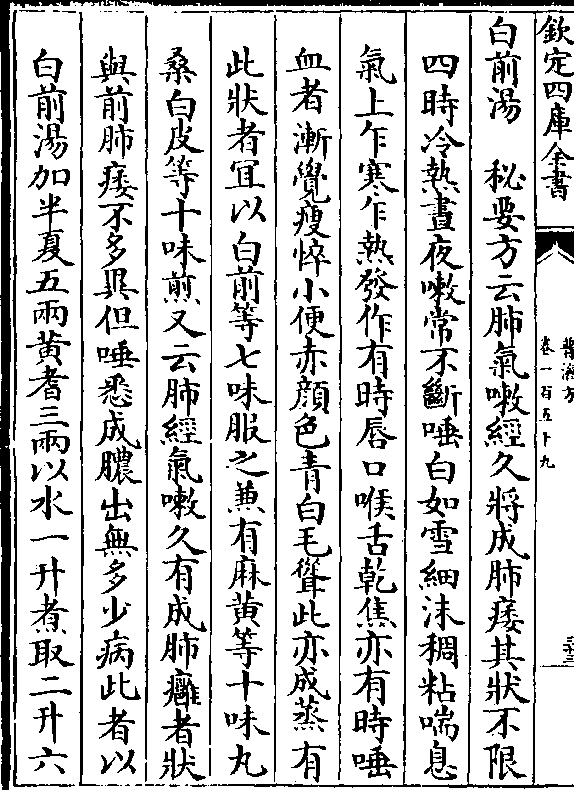 欽定四庫全書
醫方
卷一百五十九
三十三
白前湯　秘要方云肺氣嗽經久將成肺痿其狀不限
四時冷熱晝夜嗽常不斷唾白如雪細沫稠粘喘息
氣上乍寒乍熱發作有時唇口喉舌乾焦亦有時唾
血者漸覺瘦悴小便赤顔色青白毛聳此亦成蒸有
此狀者宜以白前等七味服之兼有麻黄等十味丸
桑白皮等十味煎又云肺經氣嗽久有成肺癰者狀
與前肺痿不多異但唾悉成膿出無多少病此者以
白前湯加半夏五兩黄耆三兩以水一升煮取二升六